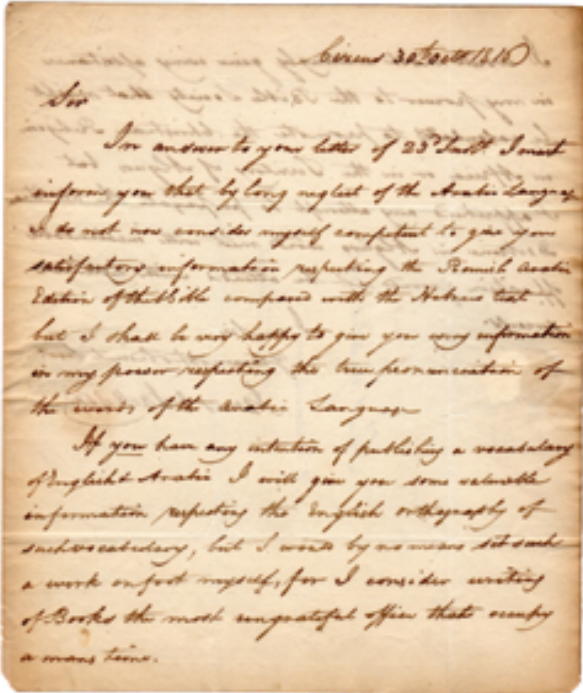 Circus 30th Octr 1816
Sir
In answer to your letter of 23d Inst. I must
inform you that by long neglect of the Arabic Language
I do not now consider myself competent to give you
satisfactory information respecting the Romish Arabic
Edition of the Bible compared with the Hebrew text
but I shall be very happy to give you any information
in my power respecting the true pronunciation of
the words of the Arabic Language
If you have any intention of publishing a vocabulary
of English & Arabic I will give you some valuable
information respecting the English orthography of
such vocabulary, but I would by no means set such
a work on foot myself, for I consider writing
of Books the most ungrateful office that can occupy
a mans time.